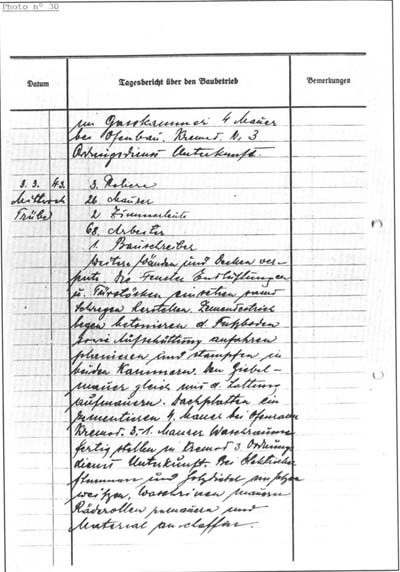 Photo nº 30
Datum
Tagesbericht über den Baubetrieb
Bemerkungen
im Gasskammer 4 Mauer
bei Ofenbau. Kremat. N. 3
Ordnungsdienst Unterkunft.
3. 3. 43.
3. Poliere
Mittwoch
26 Maurer
Trübe
2 Zimmerleute
68 Arbeiter
1. Bauschreiber
Weitere Wänden und Decken ver-
putz. die Fenster Entlüftungen
u. Türstöcken einsetzen
herstellen. Zementestrich
legen betonieren d. Fußboden
sowie Aufschüttung anfahren
planieren und stampfen in
beiden Kammern. Den Giebel-
mauer gleich mit d. Lattung
aufmauern. Dachplatten ein
zementieren 4. Maurer bei
Kremat. 3. 1. Maurer
fertig stellen in Kremat 3 Ordnungs
dienst Unterkunft. Bei
und Holzdübel
mauern
und
Material